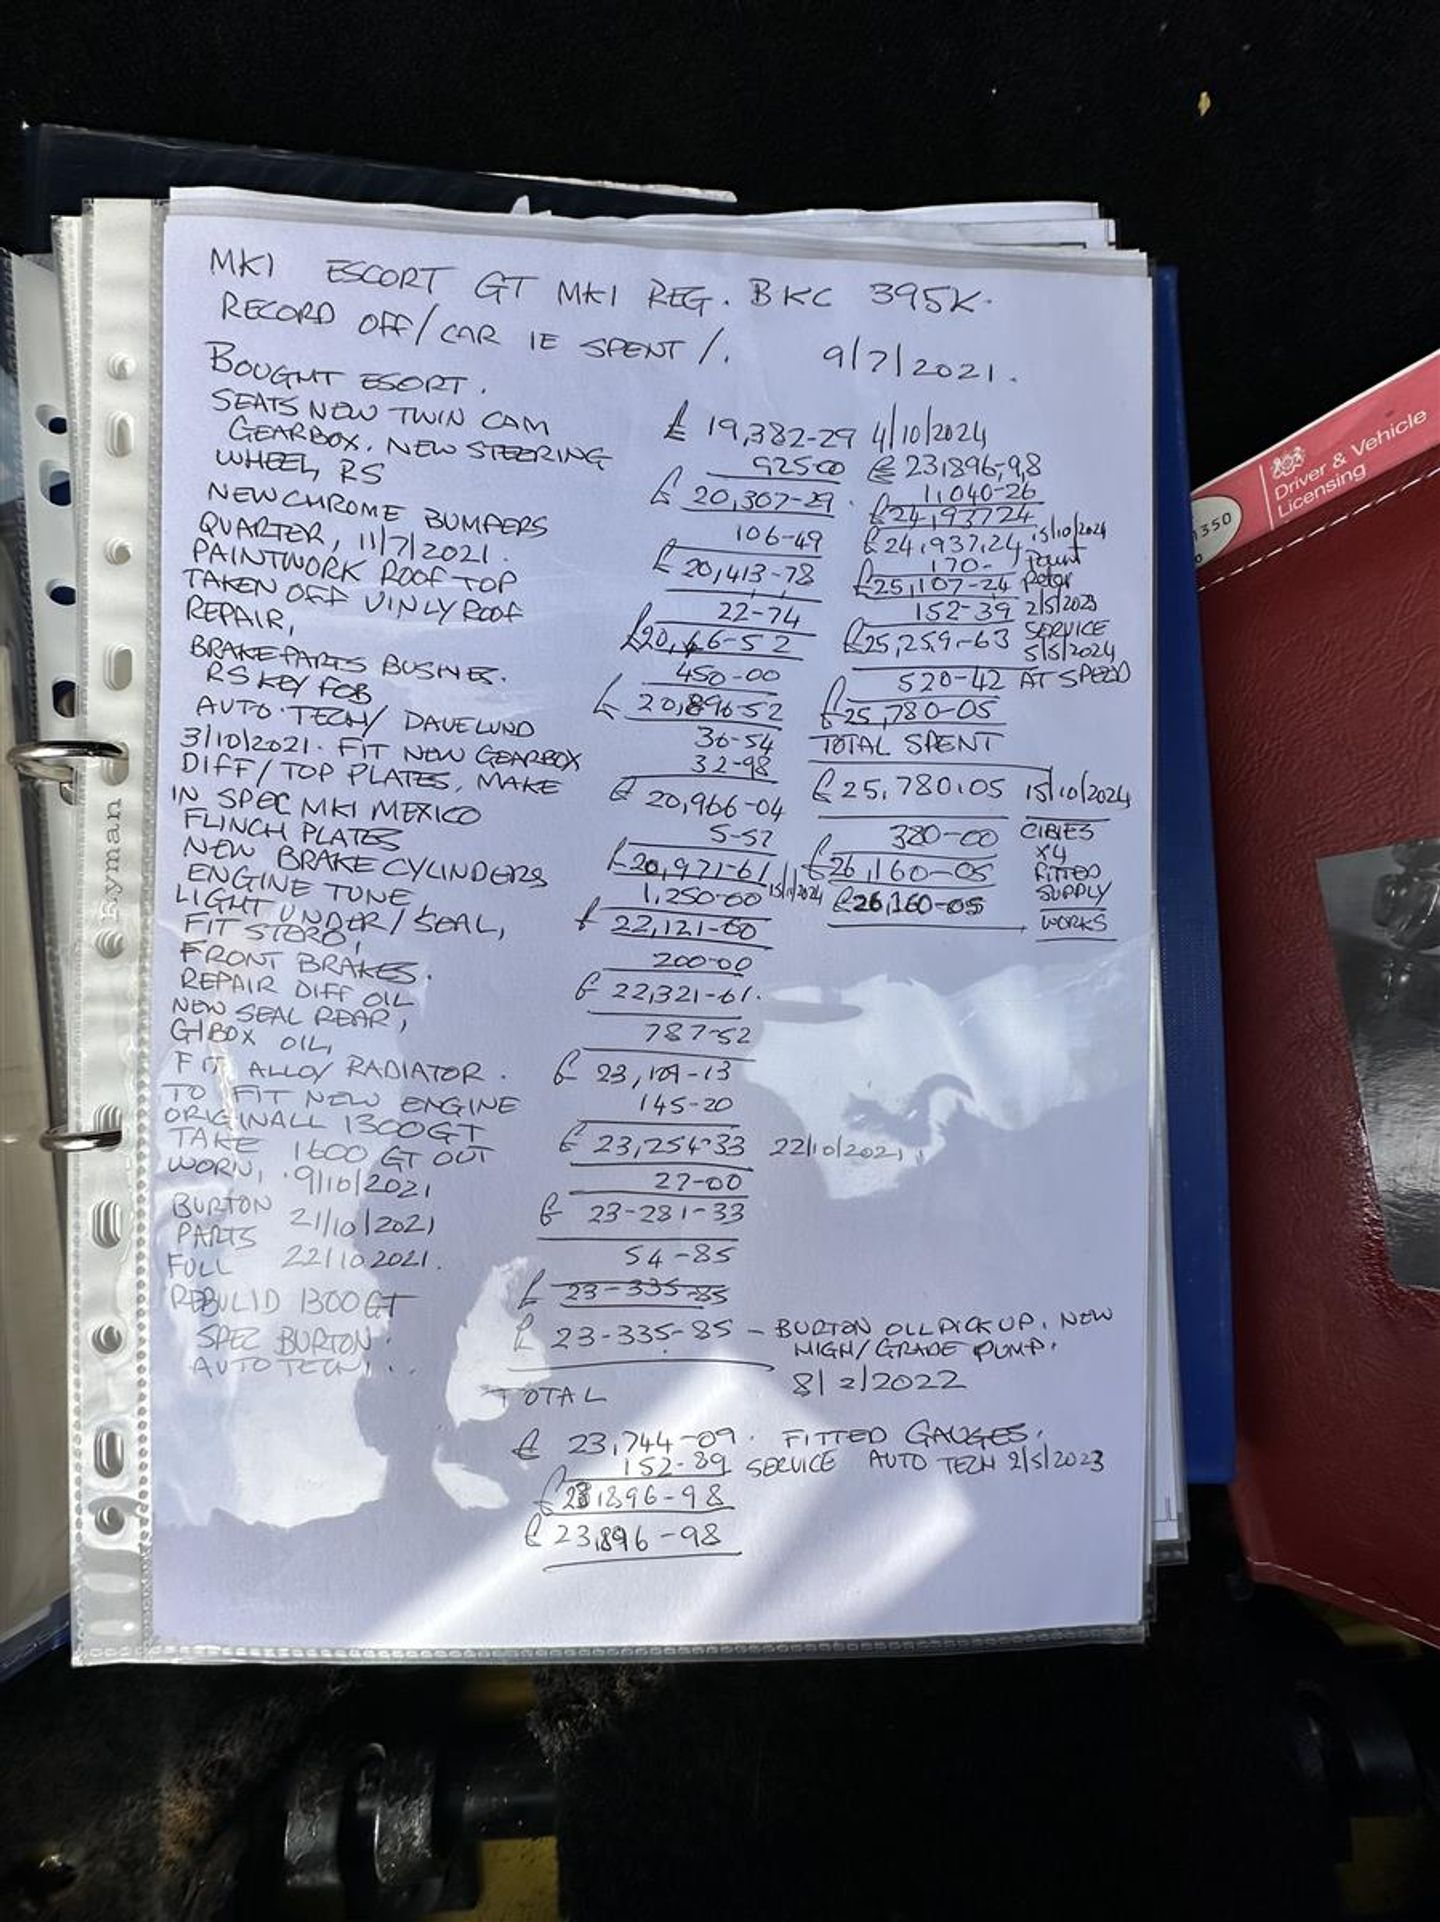 MK1 ESCORT GT MK1 REG. BKC 395K.
RECORD OFF/CAR IE SPENT/. 9/7/2021.
BOUGHT ESORT.
SEATS NEW TWIN CAM
GEARBOX. NEW STEERING
WHEEL, RS
NEW CHROME BUMPERS
QUARTER, 11/7/2021.
PAINTWORK ROOF TOP
TAKEN OFF VINLY ROOF
REPAIR,
BRAKE PARTS BUSINES.
RS KEY FOB
AUTO TECH/ DAVE LUND
3/10/2021. FIT NEW GEARBOX
DIFF/TOP PLATES, MAKE
IN SPEC MK1 MEXICO
FLINCH PLATES
NEW BRAKE CYLINDERS
ENGINE TUNE,
LIGHT UNDER/SEAL,
FIT STERO,
FRONT BRAKES.
REPAIR DIFF OIL
NEW SEAL REAR,
G/BOX OIL,
FIT ALLOY RADIATOR.
TO FIT NEW ENGINE
ORIGINALL 1300GT
TAKE 1600 GT OUT
WORN, 9/10/2021
BURTON 21/10/2021
PARTS
FULL 22/10.2021.
REBULID 1300GT
SPEC BURTON.
AUTO TECH, ..
£ 19,382-29
925-00
£ 20,307-29.
106-49
£ 20,413-78
22-74
450-00
£ 20,896-52
36-54
32-98
£ 20,966-04
5-57
£20,971-61
1,250-00
£ 22,121-60
200-00
£ 22,321-61.
787-52
£ 23,109-13
145-20
£ 23,254-33 22/10/2021,
27-00
£ 23-281-33
54-85
£ 23-335-85
£ 23-335-85 - BURTON OIL PICK UP. NEW
HIGH/GRADE PUMP.
8/2/2022
TOTAL
£ 23,744-09. FITTED GAUGES.
152-89 SERVICE AUTO TECH 2/5/2023
£23,896-98
£ 23,896-98
4/10/2024
£ 23,896-98
1,040-26
£24,937 24
£24,937.24 15/10/2024
170- Paint
£25,107-24 Peter
152-39 2/5/2023
£25,259-63 SERVICE
5/5/2024
520-42 AT SPEED
£25,780-05
TOTAL SPENT
£25,780.05 15/10/2024
380-00 CIBIES
X4
£26,160-05 FITTED
SUPPLY
15/11/2024 £26,160-05
WORKS
Ryman
Driver & Vehicle
Licensing
1350